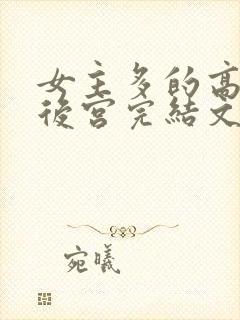 女主多的高
後宮完結文
宛曦